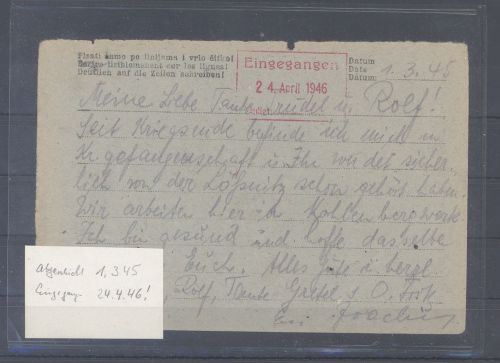 Pisati samo po linijama i vrlo čitko!
Ecrire lisiblement sur les lignes!
Deutlich auf die Zeilen schreiben!
Eingegangen
24. April 1946
Datum
Date
Datum:
1.3.45
Meine Liebe Tante Trudel u. Rolf!
Seit Kriegsende befinde ich mich in
Kr.gefangenschaft u. Ihr werdet sicher-
lich von der Lößnitz schon gehört haben.
Wir arbeiten hier in Kohlenbergwerke
Ich bin gesund und hoffe dasselbe
Euch. Alles Gute u. herzl.
Rolf, Tante Gretel u. O.
Euer Joachim
abgeschickt 1.3.45
Eingang 24.4.46!